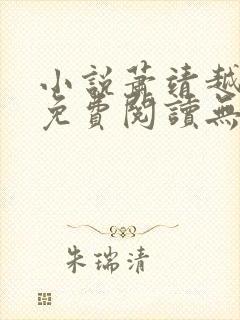 小說蕭靖越
免費閱讀無
朱瑞清